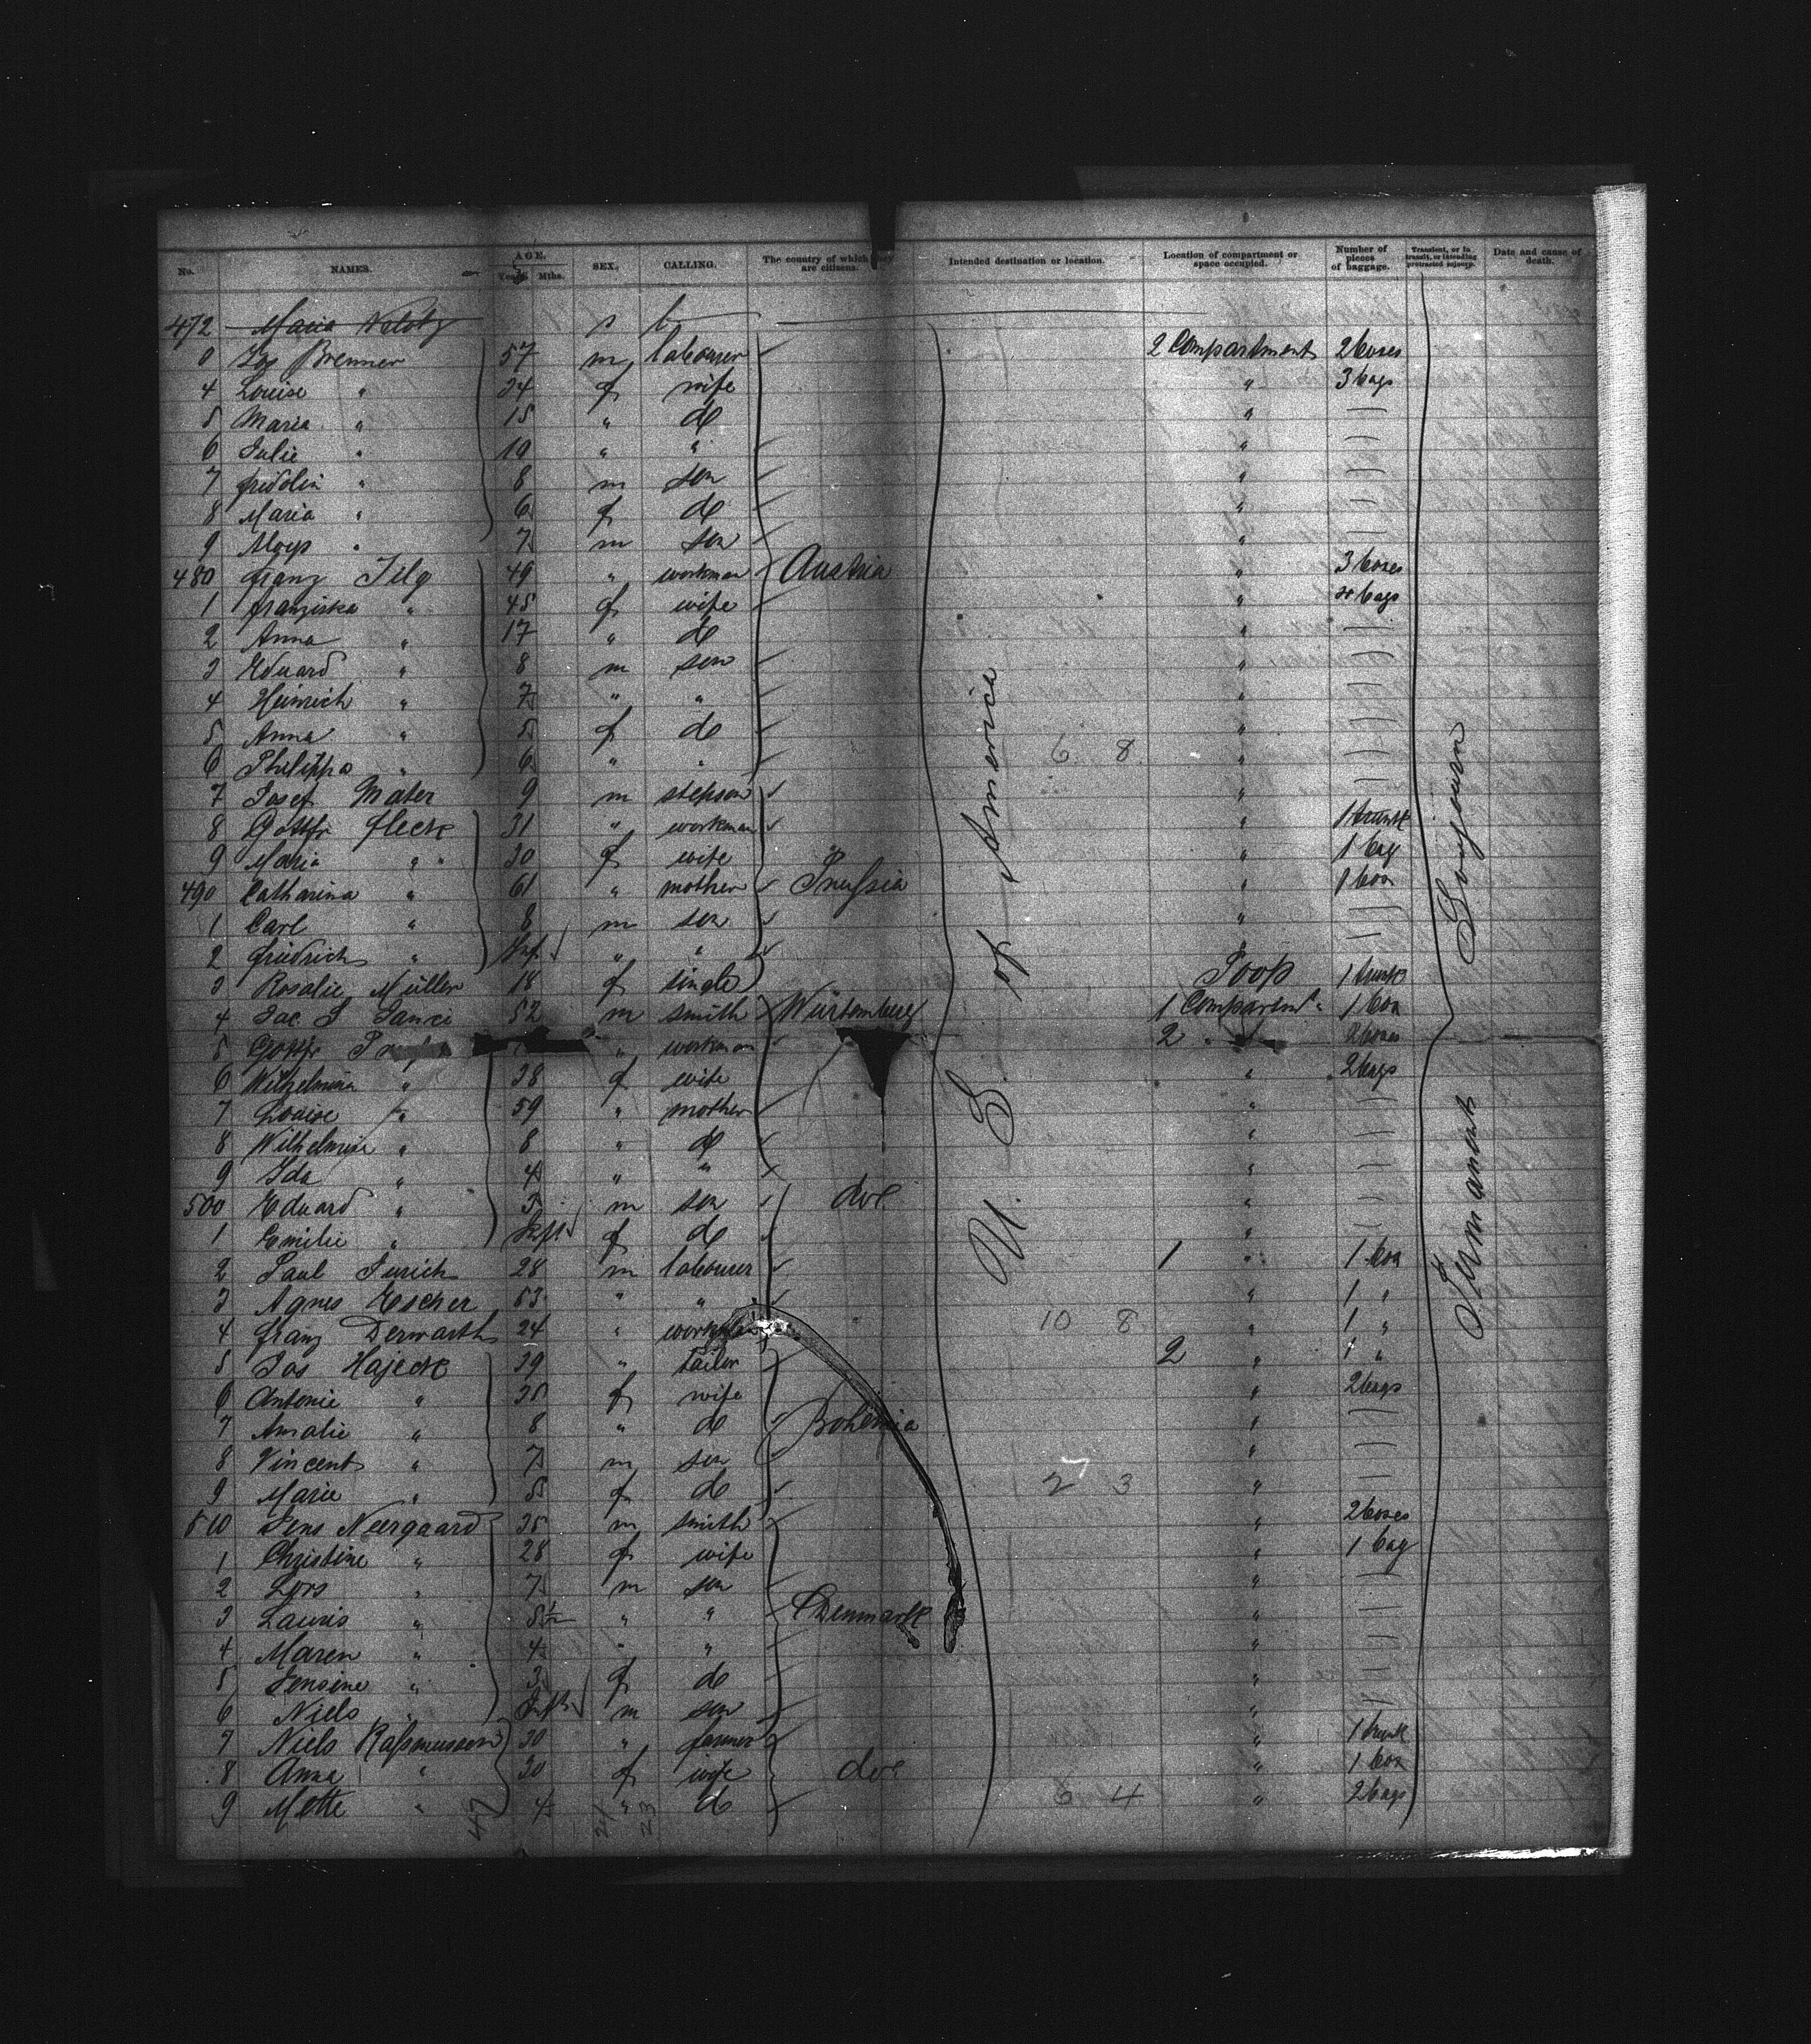 No. NAMES. AGE. Years Mths. SEX. CALLING. The country of which they are citizens. Intended destination or location. Location of compartment or space occupied. Number of pieces of baggage. Transient, or in transit, or intending protracted sojourn. Date and cause of death.
472 Maria
Jos Brenner 57 m labourer 2 Compartment 2 boxes
4 Louise " f wife " 3 bags
5 Maria " 15 " do "
6 Julie " 19 " " "
7 Fridolin " 8 m son "
8 Maria " 6 f do "
9 Aloys " 7 m son "
480 Franz Jilg 49 " workman Austria " 3 boxes
1 Franziska " 45 f wife " bags
2 Anna " 17 " do "
3 Eduard " 8 m son "
4 Heinrich " 7 " " "
5 Anna " 5 f do "
6 Philippa " 6 " " 6 8 "
7 Josef Mater 9 m stepson "
8 Gottfr Fleck 31 " workman " 1 trunk
9 Maria " 30 f wife " 1 bag
490 Catharina " 61 " mother Prussia " 1 box
1 Carl " 8 m son "
2 Friedrich " Inf " " "
3 Rosalie Müller 18 f single Poop 1 trunk
4 Jac. 52 m smith Würtemberg 1 Compartmt. 1 box
5 Gottfr " workman 2 " 2 boxes
6 Wilhelmina " 38 f wife " 2 bags
7 Louise " 59 " mother "
8 Wilhelmine " 8 " do "
9 Ida " 4 " " "
500 Eduard " 3 m son do "
1 Emilie " Inft f do "
2 Paul Jurich 28 m labourer 1 " 1 box
3 Agnes Escher 53 " " " 1 "
4 Franz Derwarth 24 " workman 10 8 " 1 "
5 Jos Hajeck 39 " tailor 2 " 1 "
6 Antonie " 35 f wife " 2 bags
7 Amalie " 8 " do Bohemia "
8 Vincent " 7 m son "
9 Marie " 5 f do 2 3 "
510 Jens Neergaard 35 m smith " 2 boxes
1 Christine " 28 f wife " 1 bag
2 Lars " 7 m son "
3 Lauris " 5 " " Denmark "
4 Maren " 4 " " "
5 Jensine " 3 f do "
6 Niels " Inft m son "
7 Niels Rasmussen 30 " farmer " 1 trunk
8 Anna " 30 f wife do " 1 box
9 Mette " 4 " do 6 4 " 2 bags
47 24 23
U. S. of America
Permanent Sojourn